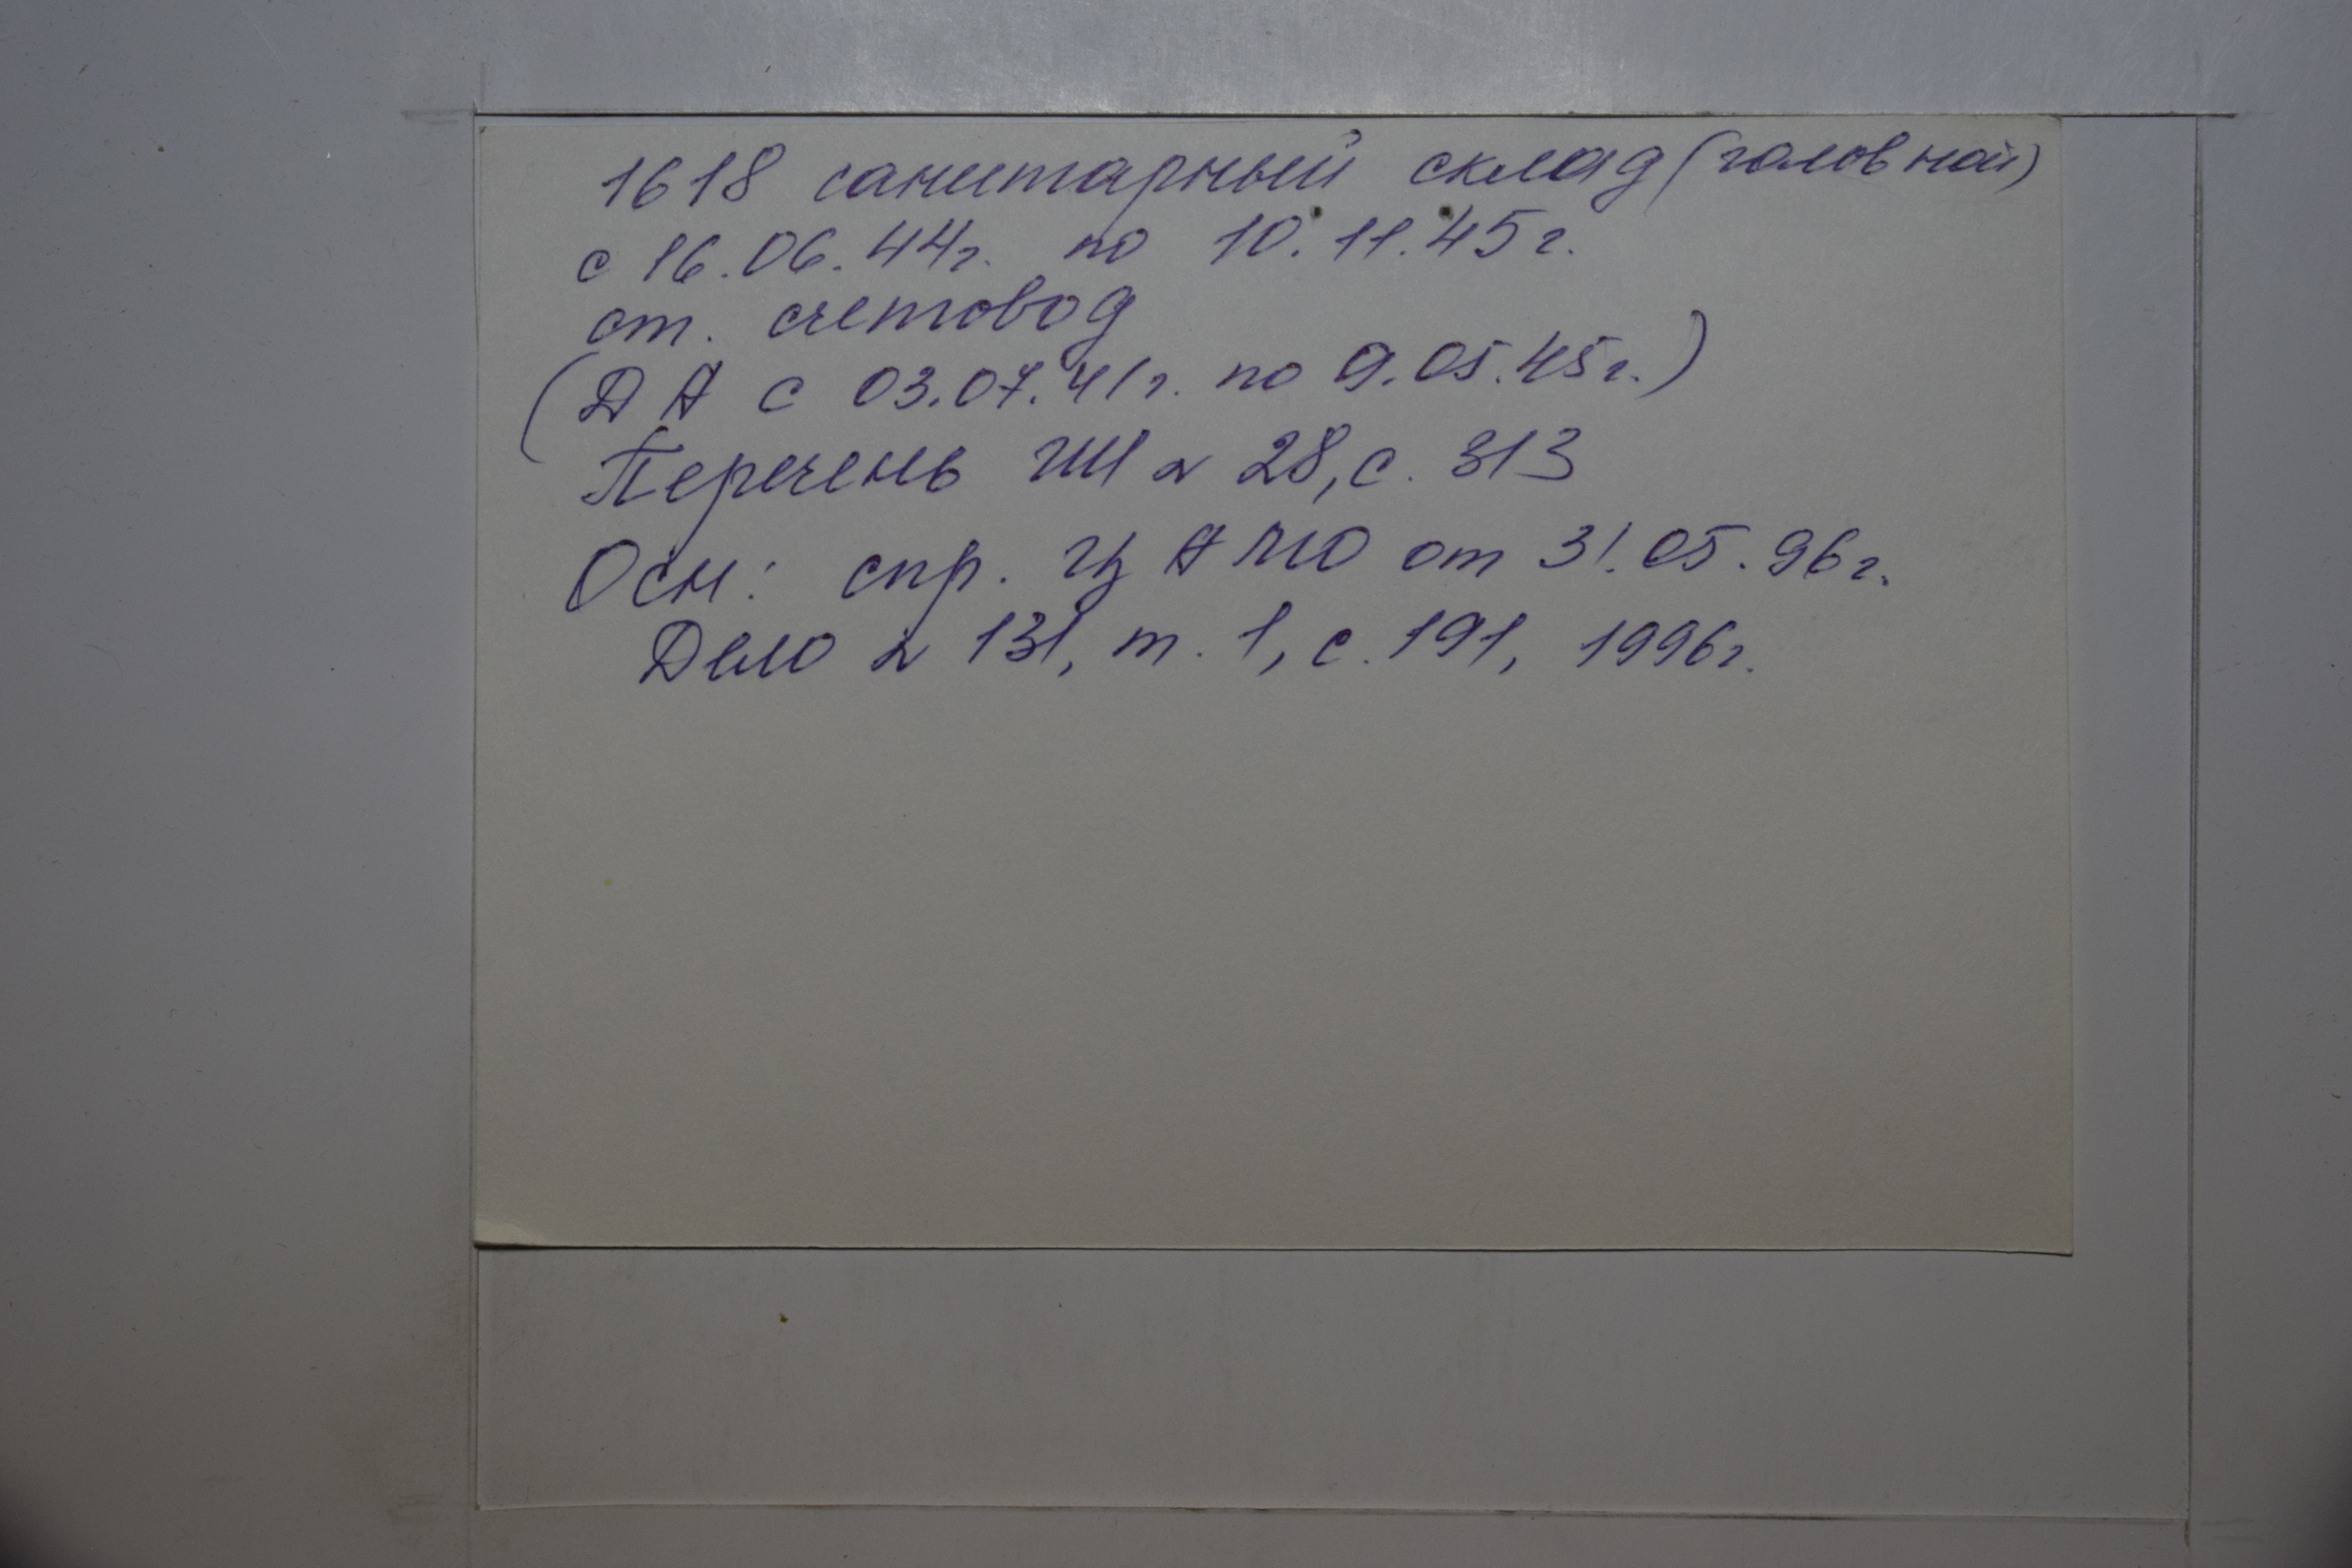 1618 санитарный склад (головной)
с 16.06.44г. по 10.11.45г.
ст. счетовод
(ДА с 03.07.41г. по 9.05.45г.)
Перечень ГШ № 28, с. 313
Осн: спр. ЦАМО от 31.05.96г.
Дело № 131, т. 1, с. 191, 1996г.